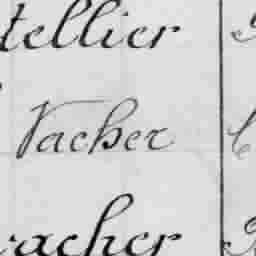 tellier
Vacher
acher